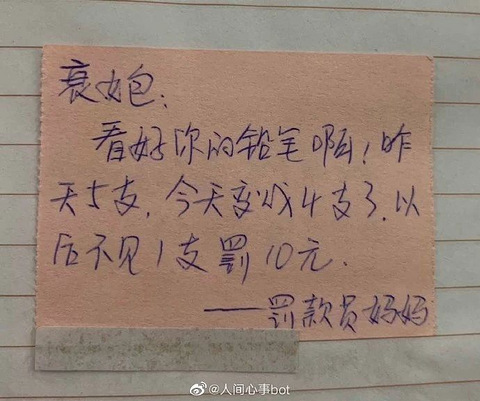 衰女包：
看好你的铅笔啊！昨
天5支，今天变成4支了，以
后不见1支罚10元．
——罚款员妈妈
@人间心事bot